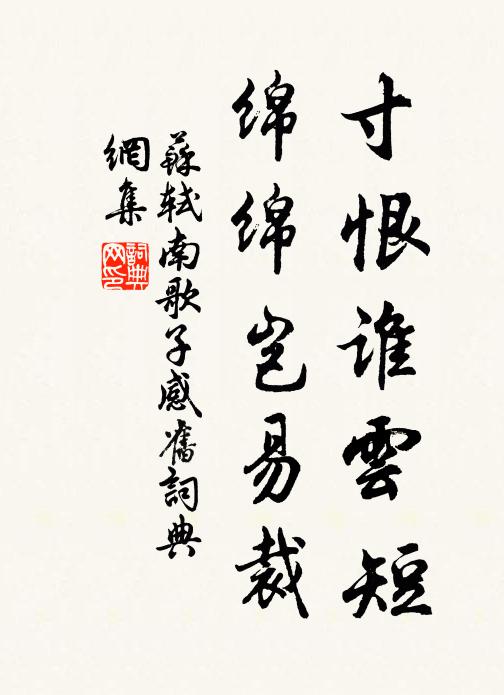 寸恨谁雲短
綿綿岂易裁
蘇軾南歌子感舊詞典
網集
詞典网印